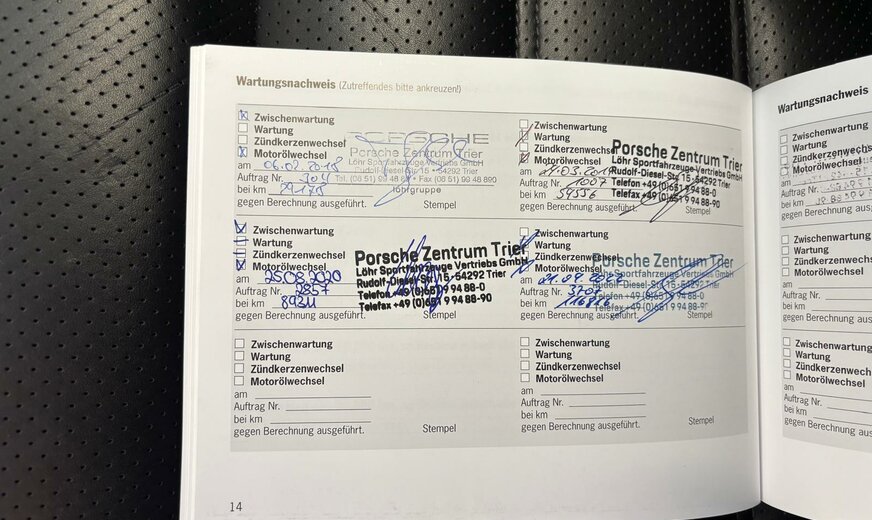 Wartungsnachweis (Zutreffendes bitte ankreuzen!)
Zwischenwartung
Wartung
Zündkerzenwechsel
Motorölwechsel
am 06.02.2018
Auftrag Nr. 304
bei km 29175
gegen Berechnung ausgeführt. Stempel
PORSCHE
Porsche Zentrum Trier
Löhr Sportfahrzeuge Vertriebs GmbH
Rudolf-Diesel-Str. 15 • 54292 Trier
Tel. (06 51) 99 48 8 • Fax (06 51) 99 48 890
löhrgruppe
Zwischenwartung
Wartung
Zündkerzenwechsel
Motorölwechsel
am 21.03.2019
Auftrag Nr. 1007
bei km 59556
gegen Berechnung ausgeführt. Stempel
Porsche Zentrum Trier
Löhr Sportfahrzeuge Vertriebs GmbH
Rudolf-Diesel-Str. 15 · 54292 Trier
Telefon +49 (0)651 9 94 88-0
Telefax +49 (0)651 9 94 88-90
Zwischenwartung
Wartung
Zündkerzenwechsel
Motorölwechsel
am 25.08.2020
Auftrag Nr. 2857
bei km 89311
gegen Berechnung ausgeführt. Stempel
Porsche Zentrum Trier
Löhr Sportfahrzeuge Vertriebs GmbH
Rudolf-Diesel-Str. 15 · 54292 Trier
Telefon +49 (0)651 9 94 88-0
Telefax +49 (0)651 9 94 88-90
Zwischenwartung
Wartung
Zündkerzenwechsel
Motorölwechsel
am
Auftrag Nr.
bei km
gegen Berechnung ausgeführt. Stempel
Porsche Zentrum Trier
Löhr Sportfahrzeuge Vertriebs GmbH
Rudolf-Diesel-Str. 15 · 54292 Trier
Telefon +49 (0)651 9 94 88-0
Telefax +49 (0)651 9 94 88-90
Zwischenwartung
Wartung
Zündkerzenwechsel
Motorölwechsel
am
Auftrag Nr.
bei km
gegen Berechnung ausgeführt. Stempel
Zwischenwartung
Wartung
Zündkerzenwechsel
Motorölwechsel
am
Auftrag Nr.
bei km
gegen Berechnung ausgeführt. Stempel
14
Wartungsnachweis
Zwischenwartung
Wartung
Zündkerzenwechs
Motorölwechsel
am
Auftrag Nr.
bei km
gegen Berechnung ausgefü
Zwischenwartung
Wartung
Zündkerzenwech
Motorölwechsel
am
Auftrag Nr.
bei km
gegen Berechnung ausge
Zwischenwartung
Wartung
Zündkerzenwech
Motorölwechsel
am
Auftrag Nr.
bei km
gegen Berechnung ausg